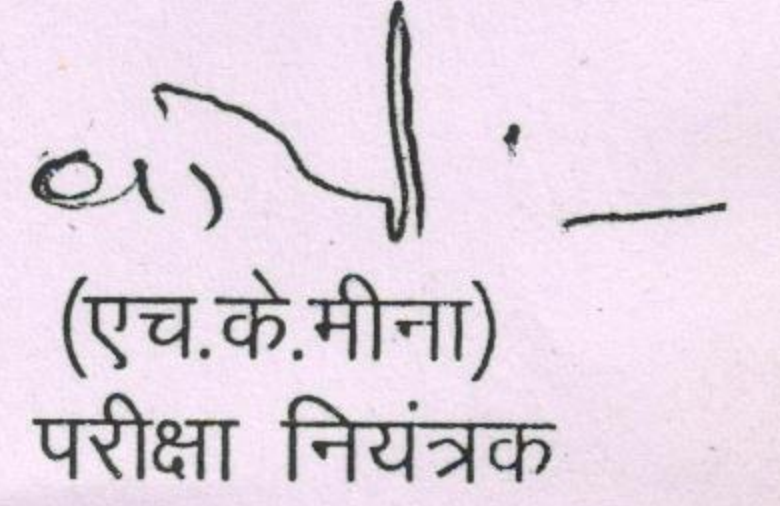 (एच.के.मीना)
परीक्षा नियंत्रक